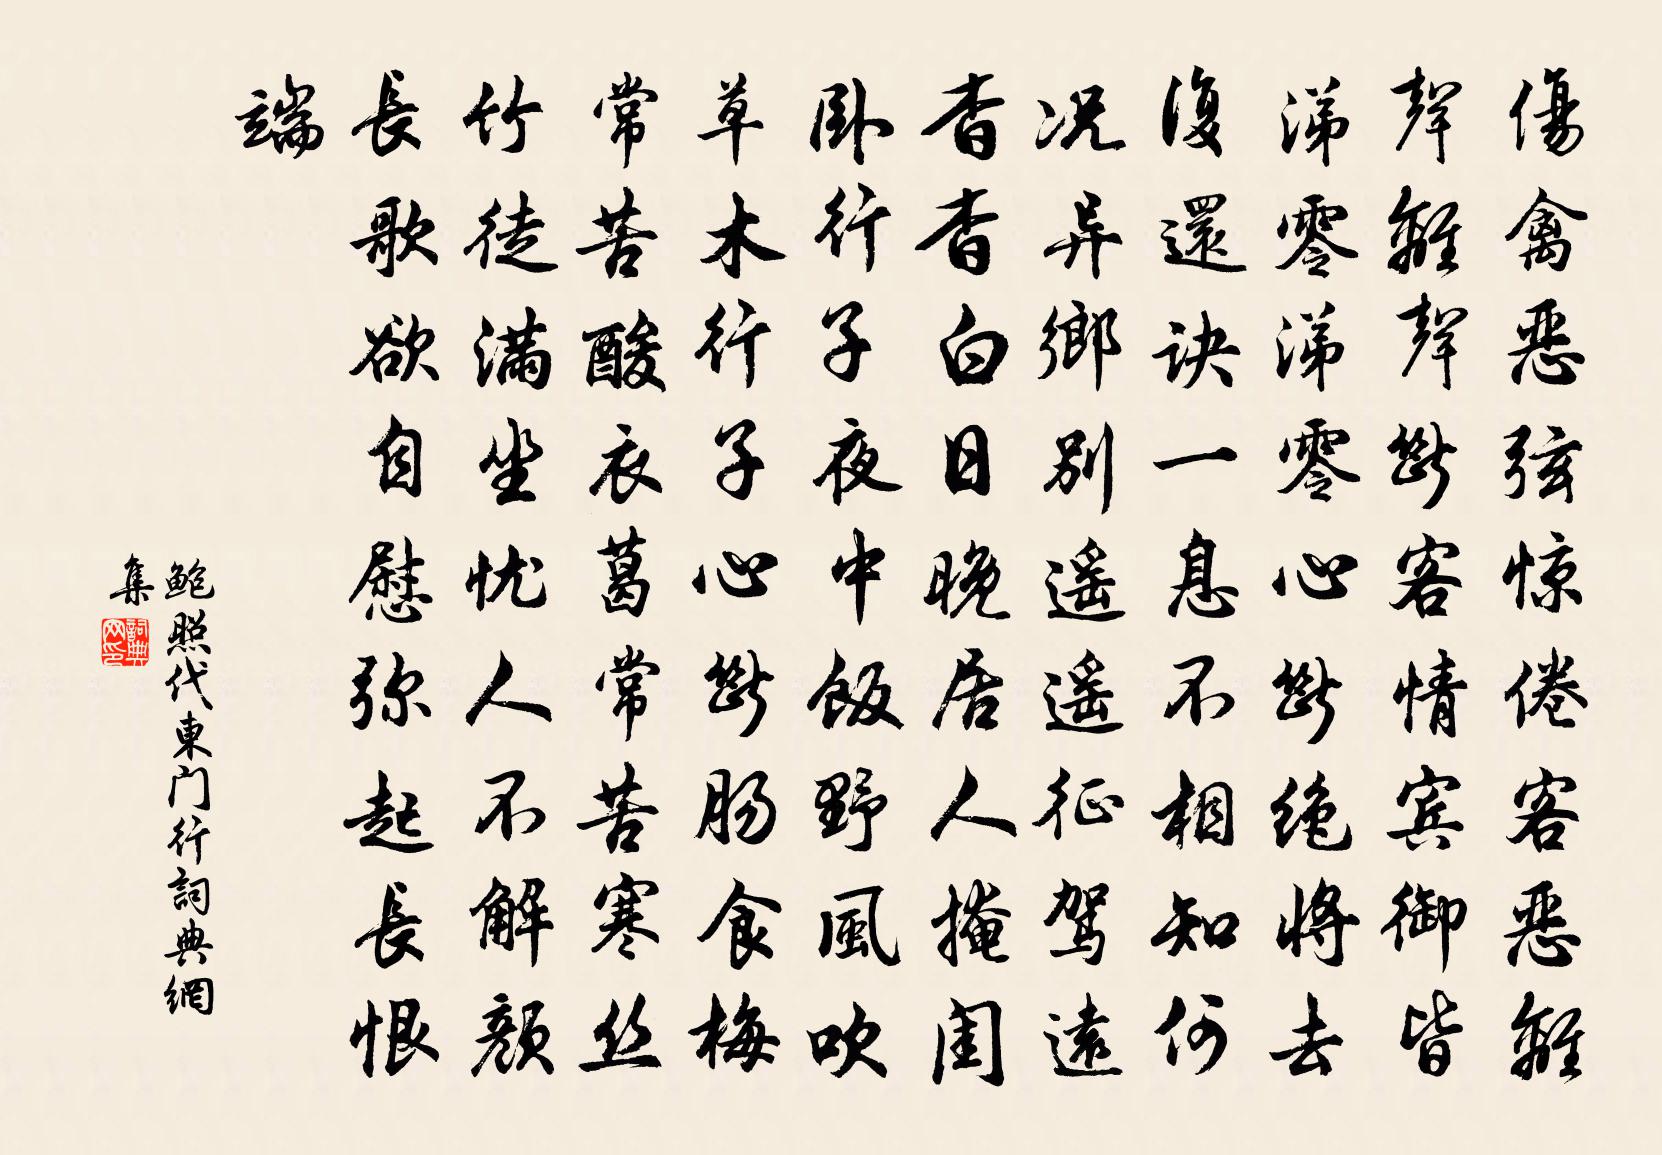 傷禽惡弦惊倦客惡離
聲離聲斷客情宾御皆
涕零涕零心斷绝將去
復還訣一息不相知何
况异鄉别遥遥征驾遠
杳杳白日晚居人掩闺
卧行子夜中飯野風吹
草木行子心斷肠食梅
常苦酸衣葛常苦寒丝
竹徒滿坐忧人不解顏
長歌欲自慰弥起長恨
端
鮑照代東门行詞典網
集
詞典
网印